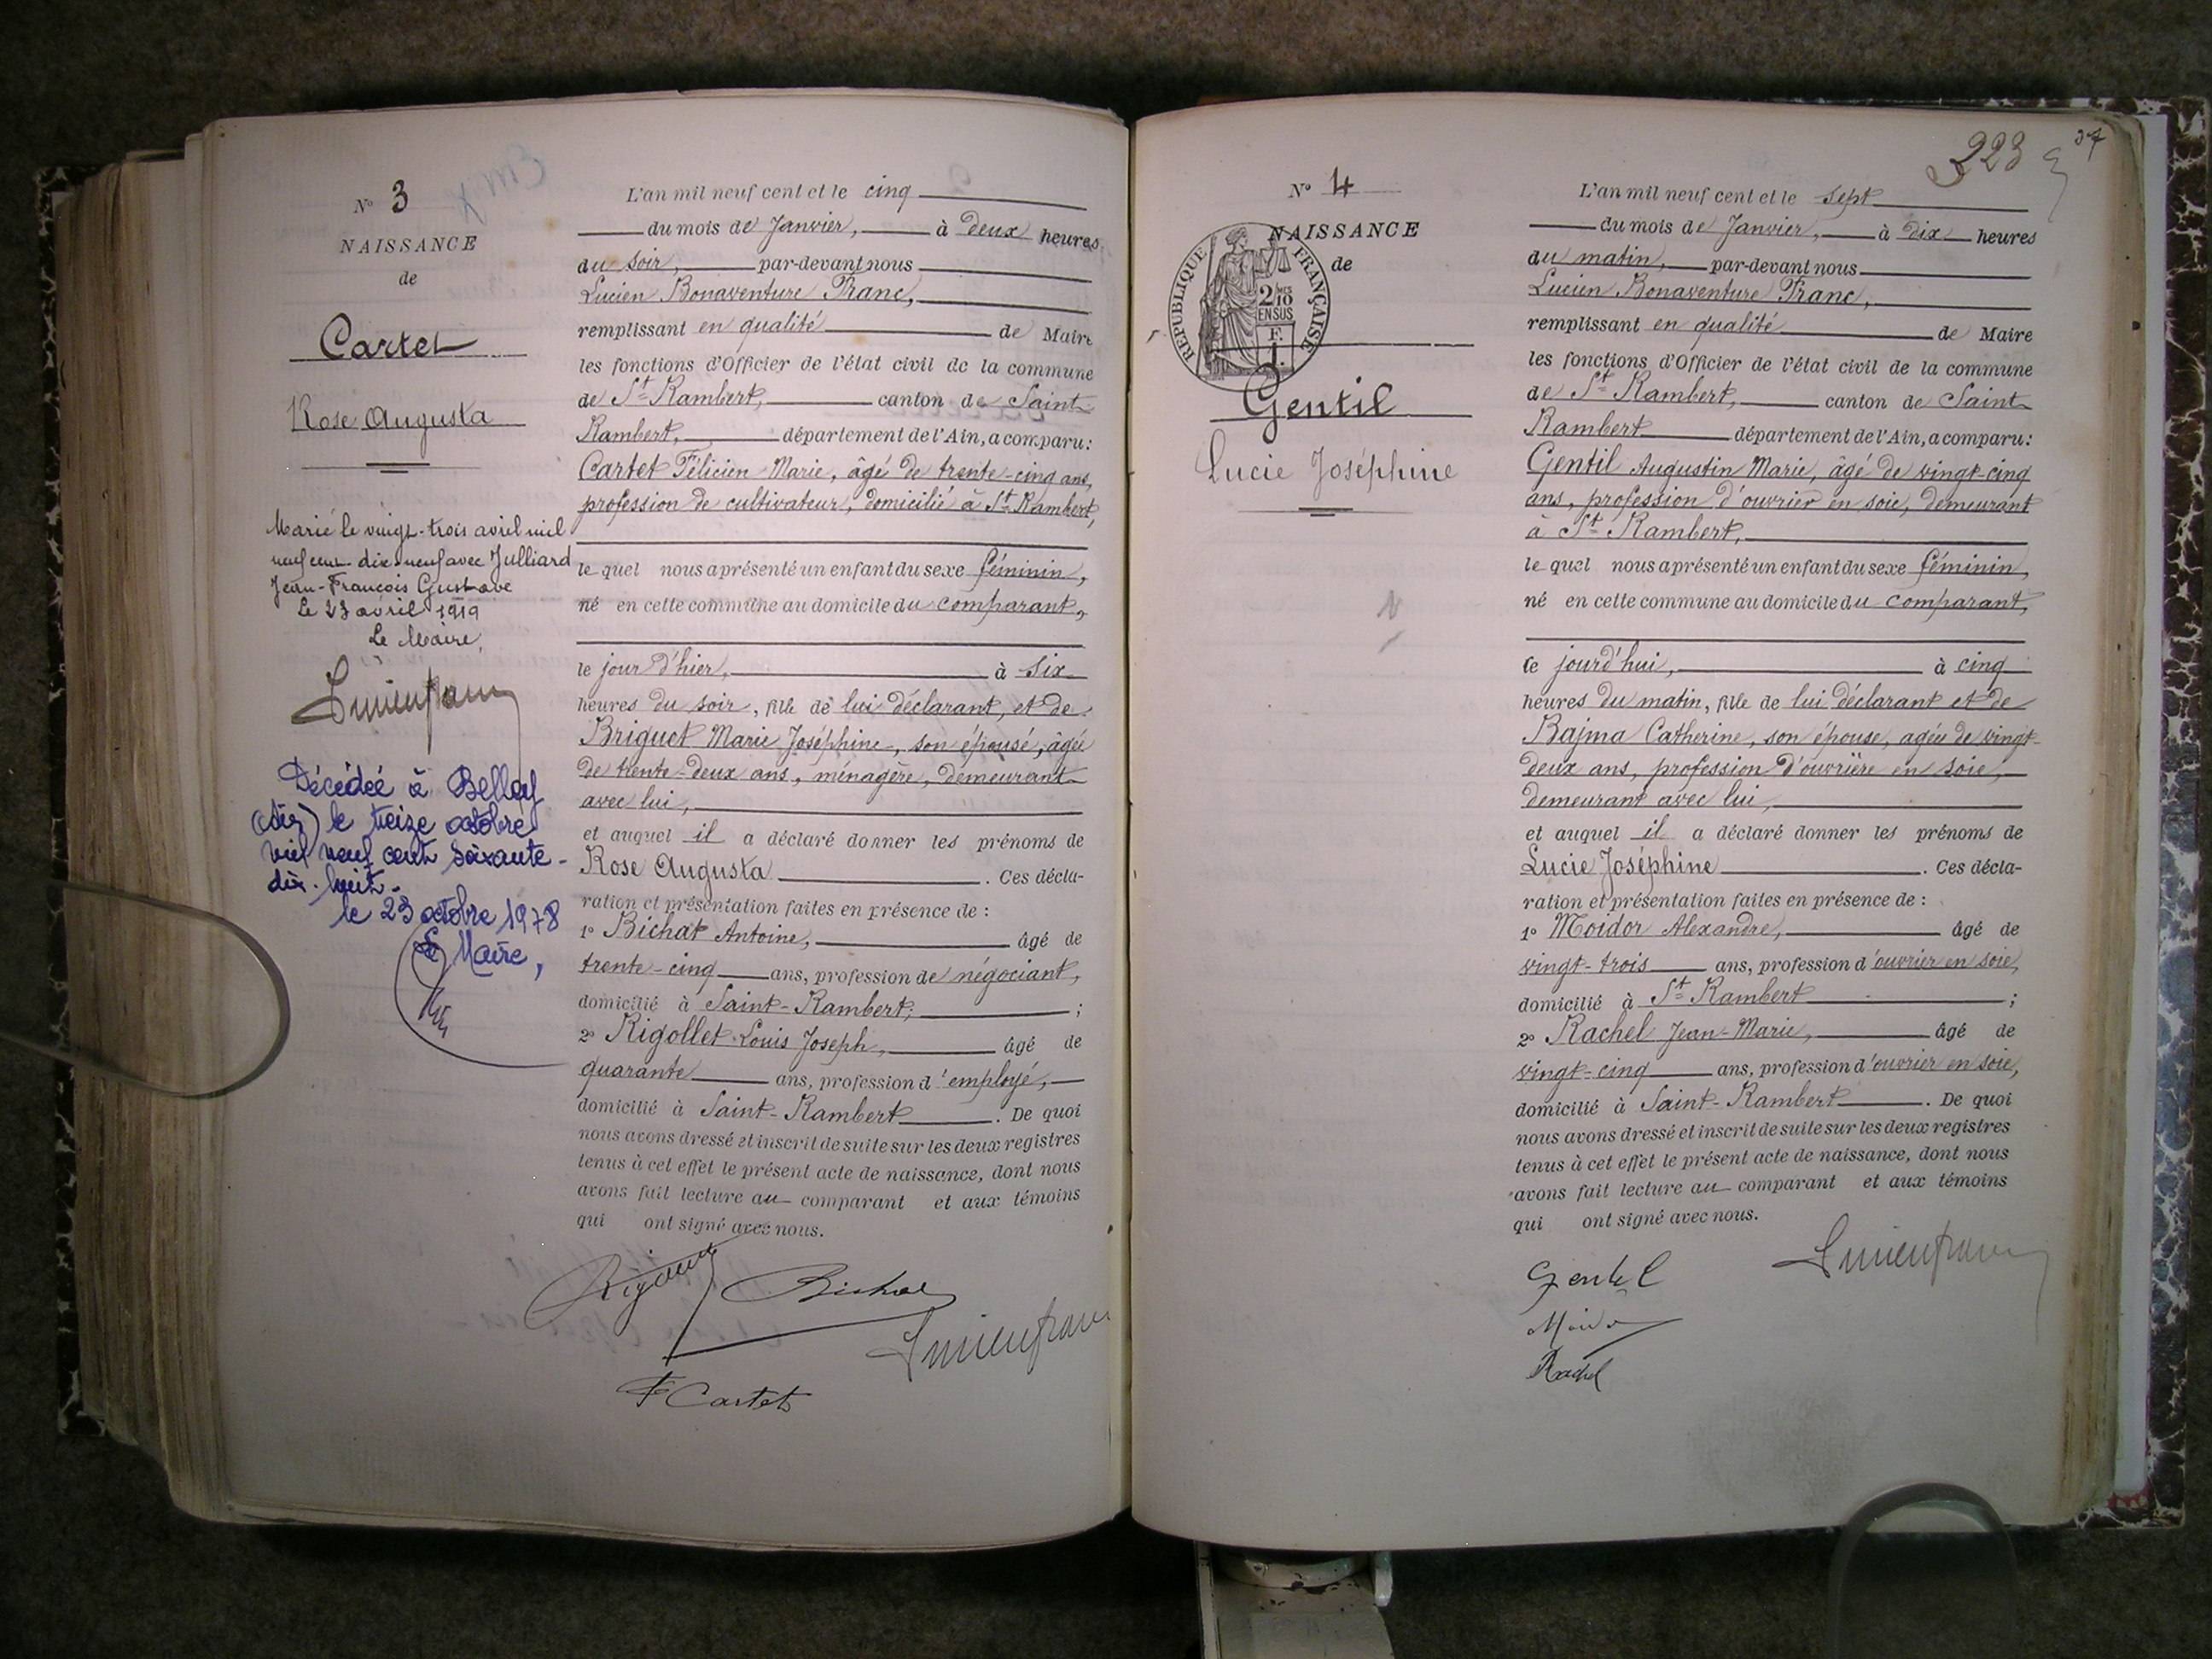 N° 3
NAISSANCE
de
Cartet
Rose Augusta
Marié le vingt-trois avril mil
neuf cent dix-neuf avec Julliard
Jean-François Gustave
Le 23 avril 1919
Le Maire,
Décédée à Belley
(Ain) le treize octobre
mil neuf cent soixante-
dix-huit.
le 23 octobre 1978
Le Maire,
L'an mil neuf cent et le cinq
du mois de Janvier, à deux heures
du soir, par-devant nous
Lucien Bonaventure Franc,
remplissant en qualité de Maire
les fonctions d'Officier de l'état civil de la commune
de St Rambert, canton de Saint-
Rambert, département de l'Ain, a comparu:
Cartet Félicien Marie, âgé de trente-cinq ans,
profession de cultivateur, domicilié à St Rambert,
le quel nous a présenté un enfant du sexe féminin,
né en cette commune au domicile du comparant,
le jour d'hier, à six
heures du soir, fille de lui déclarant, et de
Briguet Marie Joséphine, son épouse, âgée
de trente-deux ans, ménagère, demeurant
avec lui,
et auquel il a déclaré donner les prénoms de
Rose Augusta. Ces décla-
ration et présentation faites en présence de :
1° Bichat Antoine, âgé de
trente-cinq ans, profession de négociant,
domicilié à Saint-Rambert, ;
2° Rigollet Louis Joseph, âgé de
quarante ans, profession d'employé,
domicilié à Saint-Rambert. De quoi
nous avons dressé et inscrit de suite sur les deux registres
tenus à cet effet le présent acte de naissance, dont nous
avons fait lecture au comparant et aux témoins
qui ont signé avec nous.
Bichat
F Cartet
223
37
N° 4
NAISSANCE
de
REPUBLIQUE FRANÇAISE
2/10 MES
EN SUS
F.
1.
Gentil
Lucie Joséphine
L'an mil neuf cent et le sept
du mois de Janvier, à dix heures
du matin, par-devant nous
Lucien Bonaventure Franc,
remplissant en qualité de Maire
les fonctions d'Officier de l'état civil de la commune
de St Rambert, canton de Saint
Rambert département de l'Ain, a comparu:
Gentil Augustin Marie, âgé de vingt-cinq
ans, profession d'ouvrier en soie, demeurant
à St Rambert,
le quel nous a présenté un enfant du sexe féminin,
né en cette commune au domicile du comparant,
ce jourd'hui, à cinq
heures du matin, fille de lui déclarant et de
Bajma Catherine, son épouse, agée de vingt-
deux ans, profession d'ouvrière en soie,
demeurant avec lui,
et auquel il a déclaré donner les prénoms de
Lucie Joséphine. Ces décla-
ration et présentation faites en présence de :
1° Moidor Alexandre, âgé de
vingt-trois ans, profession d'ouvrier en soie,
domicilié à St Rambert ;
2° Rachel Jean-Marie, âgé de
vingt-cinq ans, profession d'ouvrier en soie,
domicilié à Saint-Rambert. De quoi
nous avons dressé et inscrit de suite sur les deux registres
tenus à cet effet le présent acte de naissance, dont nous
avons fait lecture au comparant et aux témoins
qui ont signé avec nous.
Gentil
Rachel